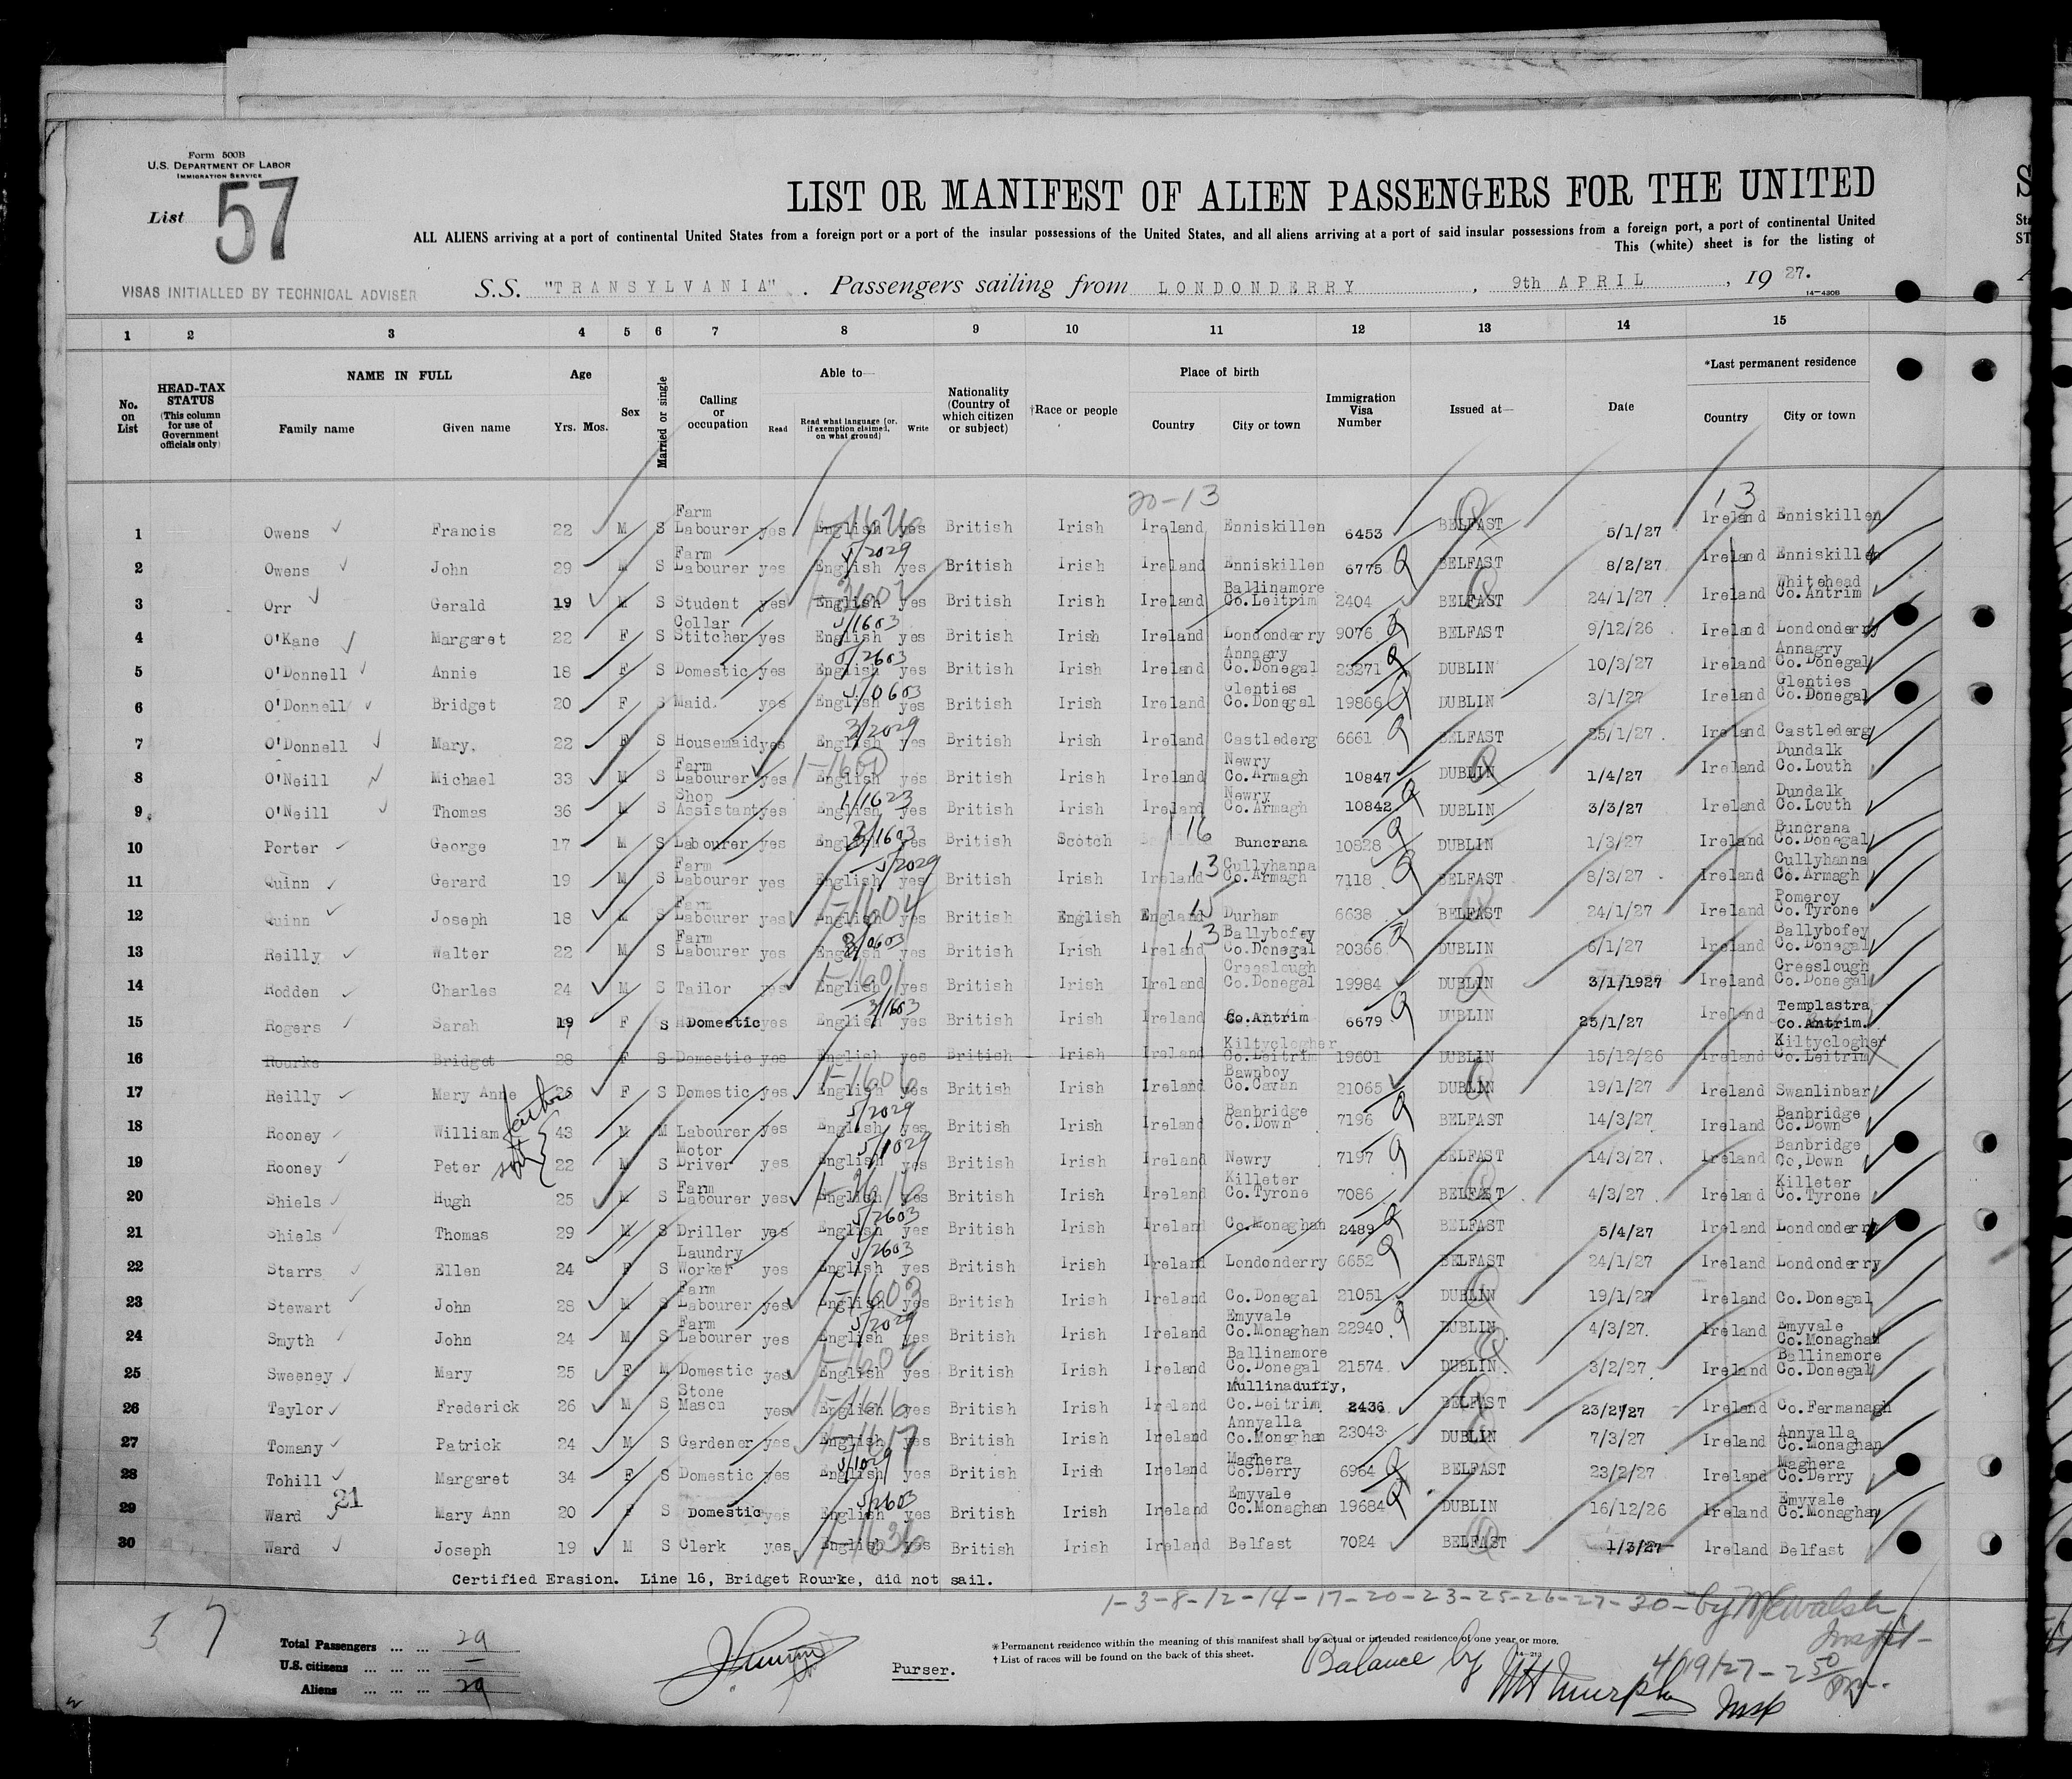 Form 500B
U.S. DEPARTMENT OF LABOR
IMMIGRATION SERVICE
List 57
LIST OR MANIFEST OF ALIEN PASSENGERS FOR THE UNITED
ALL ALIENS arriving at a port of continental United States from a foreign port or a port of the insular possessions of the United States, and all aliens arriving at a port of said insular possessions from a foreign port, a port of continental United
This (white) sheet is for the listing of
VISAS INITIALLED BY TECHNICAL ADVISER
S.S. "TRANSYLVANIA". Passengers sailing from LONDONDERRY, 9th APRIL, 1927.
14-430B
1 2 3 4 5 6 7 8 9 10 11 12 13 14 15
No. on List HEAD-TAX STATUS (This column for use of Government officials only) NAME IN FULL Family name Given name Age Yrs. Mos. Sex Married or single Calling or occupation Able to— Read Read what language (or, if exemption claimed, on what ground) Write Nationality (Country of which citizen or subject) †Race or people Place of birth Country City or town Immigration Visa Number Issued at— Date *Last permanent residence Country City or town
20-13 13
1 Owens Francis 22 M S Farm Labourer yes English yes British Irish Ireland Enniskillen 6453 BELFAST 5/1/27 Ireland Enniskillen
2 Owens John 29 M S Farm Labourer yes English yes British Irish Ireland Enniskillen 6775 BELFAST 8/2/27 Ireland Enniskillen
3 Orr Gerald 19 M S Student yes English yes British Irish Ireland Ballinamore Co.Leitrim 2404 BELFAST 24/1/27 Ireland Whitehead Co.Antrim
4 O'Kane Margaret 22 F S Collar Stitcher yes English yes British Irish Ireland Londonderry 9076 BELFAST 9/12/26 Ireland Londonderry
5 O'Donnell Annie 18 F S Domestic yes English yes British Irish Ireland Annagry Co.Donegal 23271 DUBLIN 10/3/27 Ireland Annagry Co.Donegal
6 O'Donnell Bridget 20 F S Maid. yes English yes British Irish Ireland Glenties Co.Donegal 19866 DUBLIN 3/1/27 Ireland Glenties Co.Donegal
7 O'Donnell Mary, 22 F S Housemaid yes English yes British Irish Ireland Castlederg 6661 BELFAST 25/1/27 Ireland Castlederg
8 O'Neill Michael 33 M S Farm Labourer yes English yes British Irish Ireland Newry Co.Armagh 10847 DUBLIN 1/4/27 Ireland Dundalk Co.Louth
9 O'Neill Thomas 36 M S Shop Assistant yes English yes British Irish Ireland Newry Co.Armagh 10842 DUBLIN 3/3/27 Ireland Dundalk Co.Louth
10 Porter George 17 M S Labourer yes English yes British Scotch 16 Buncrana 10828 DUBLIN 1/3/27 Ireland Buncrana Co.Donegal
11 Quinn Gerard 19 M S Farm Labourer yes English yes British Irish Ireland 13 Cullyhanna Co.Armagh 7118 BELFAST 8/3/27 Ireland Cullyhanna Co.Armagh
12 Quinn Joseph 18 M S Farm Labourer yes English yes British English England 15 Durham 6638 BELFAST 24/1/27 Ireland Pomeroy Co.Tyrone
13 Reilly Walter 22 M S Farm Labourer yes English yes British Irish Ireland 13 Ballybofey Co.Donegal 20366 DUBLIN 6/1/27 Ireland Ballybofey Co.Donegal
14 Rodden Charles 24 M S Tailor yes English yes British Irish Ireland Creeslough Co.Donegal 19984 DUBLIN 3/1/1927 Ireland Creeslough Co.Donegal
15 Rogers Sarah 19 F S Domestic yes English yes British Irish Ireland Co.Antrim 6679 DUBLIN 25/1/27 Ireland Templastra Co.Antrim.
16 Rourke Bridget 28 F S Domestic yes English yes British Irish Ireland Kiltyclogher Co.Leitrim 19601 DUBLIN 15/12/26 Ireland Kiltyclogher Co.Leitrim
17 Reilly Mary Anne 26 F S Domestic yes English yes British Irish Ireland Bawnboy Co.Cavan 21065 DUBLIN 19/1/27 Ireland Swanlinbar
18 Rooney William father 43 M M Labourer yes English yes British Irish Ireland Banbridge Co.Down 7196 BELFAST 14/3/27 Ireland Banbridge Co.Down
19 Rooney Peter son 22 M S Motor Driver yes English yes British Irish Ireland Newry 7197 BELFAST 14/3/27 Ireland Banbridge Co,Down
20 Shiels Hugh 25 M S Farm Labourer yes English yes British Irish Ireland Killeter Co.Tyrone 7086 BELFAST 4/3/27 Ireland Killeter Co.Tyrone
21 Shiels Thomas 29 M S Driller yes English yes British Irish Ireland Co.Monaghan 2489 BELFAST 5/4/27 Ireland Londonderry
22 Starrs Ellen 24 F S Laundry Worker yes English yes British Irish Ireland Londonderry 6652 BELFAST 24/1/27 Ireland Londonderry
23 Stewart John 28 M S Farm Labourer yes English yes British Irish Ireland Co.Donegal 21051 DUBLIN 19/1/27 Ireland Co.Donegal
24 Smyth John 24 M S Farm Labourer yes English yes British Irish Ireland Emyvale Co.Monaghan 22940 DUBLIN 4/3/27 Ireland Emyvale Co.Monaghan
25 Sweeney Mary 25 F M Domestic yes English yes British Irish Ireland Ballinamore Co.Donegal 21574 DUBLIN 3/2/27 Ireland Ballinamore Co.Donegal
26 Taylor Frederick 26 M S Stone Mason yes English yes British Irish Ireland Mullinaduffy, Co.Leitrim 2436 BELFAST 23/2/27 Ireland Co.Fermanagh
27 Tomany Patrick 24 M S Gardener yes English yes British Irish Ireland Annyalla Co.Monaghan 23043 DUBLIN 7/3/27 Ireland Annyalla Co.Monaghan
28 Tohill Margaret 34 F S Domestic yes English yes British Irish Ireland Maghera Co.Derry 6964 BELFAST 23/2/27 Ireland Maghera Co.Derry
29 Ward 21 Mary Ann 20 F S Domestic yes English yes British Irish Ireland Emyvale Co.Monaghan 19684 DUBLIN 16/12/26 Ireland Emyvale Co.Monaghan
30 Ward Joseph 19 M S Clerk yes English yes British Irish Ireland Belfast 7024 BELFAST 1/3/27 Ireland Belfast
Certified Erasion. Line 16, Bridget Rourke, did not sail.
1-3-8-12-14-17-20-23-25-26-27-30- by
57
Total Passengers ... ... 29
U.S. citizens ... ... ... —
Aliens ... ... ... 29
Purser.
*Permanent residence within the meaning of this manifest shall be actual or intended residence of one year or more.
† List of races will be found on the back of this sheet.
Balance by
Insp
4/19/27- 2 50 PM.